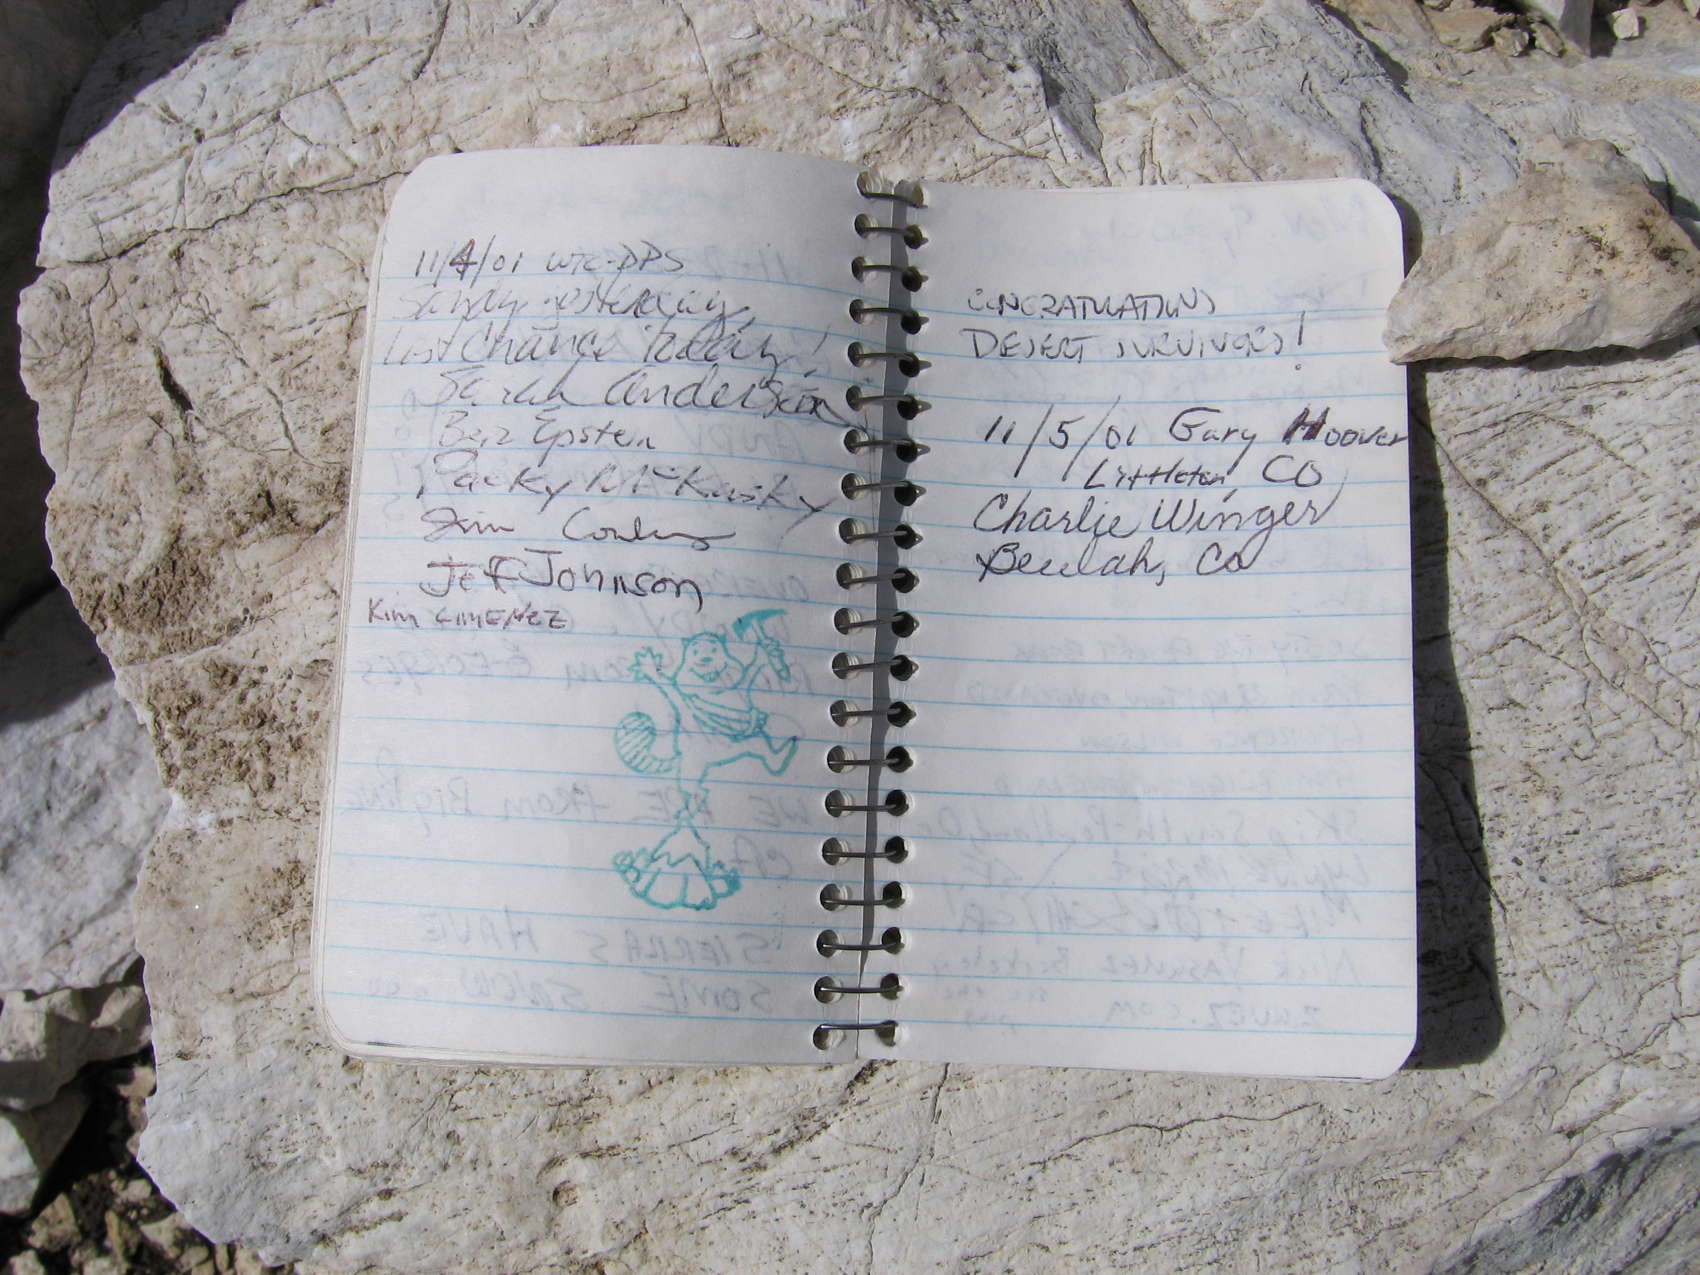 11/4/01 WTC-DPS
Sandy yesterday,
Last Chance today!
Sarah Anderson
Ben Epstein
Packy McKusky
Jim
Jeff Johnson
Kim GIMENEZ
CONGRATULATIONS
DESERT SURVIVORS!
11/5/01 Gary Hoover
Littleton, CO
Charlie Winger
Beulah, Co